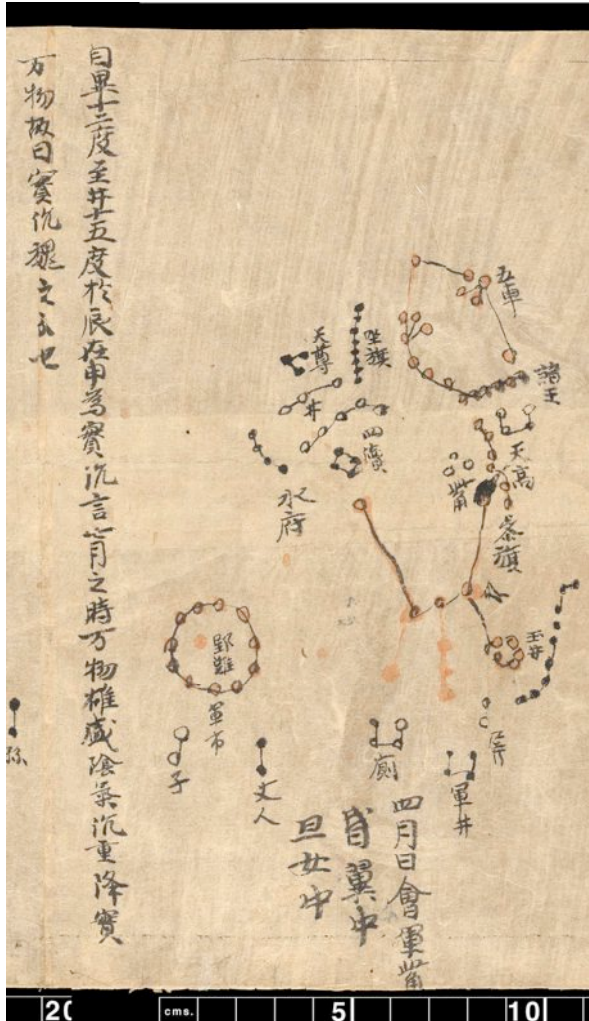 五車
諸王
天高
觜
參旗
坐旗
天尊
井
四瀆
水府
玉井
野雞
軍市
子
丈人
廁
屏
軍井
四月日會軍觜
昏翼中
旦女中
自畢十二度至井十五度於辰在申為實沉言七月之時万物雄盛陰氣沉重降實
万物故曰實沉魏之分也
孫
cms.
5
10
20